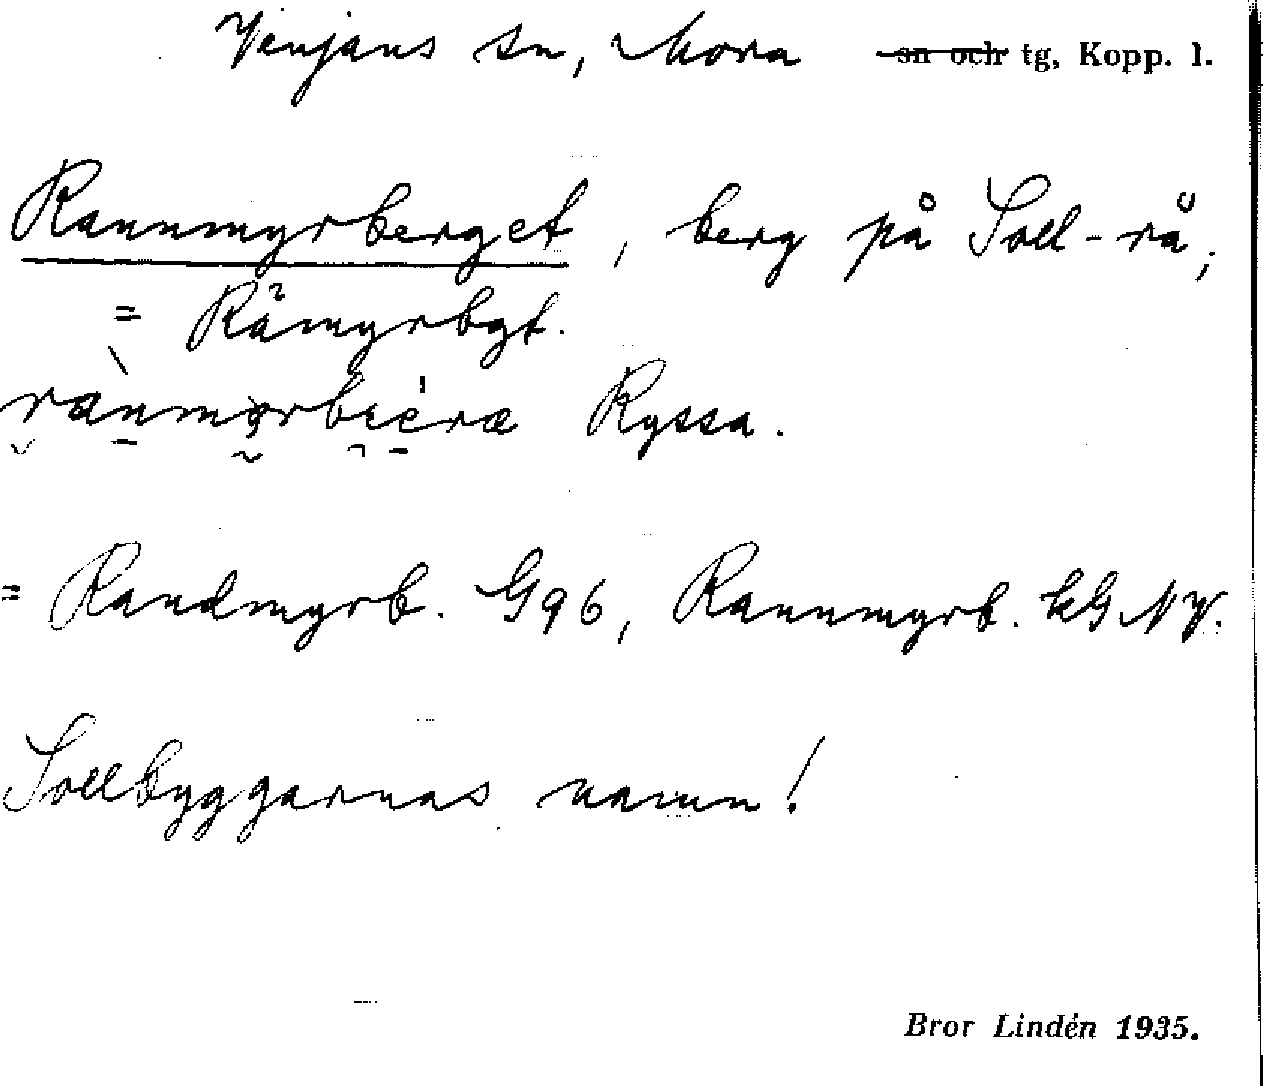 Venjans sn, Mora sn och tg, Kopp. l.
Rannmyrberget, berg på Soll-rå;
= Råmyrbgt.
Ryssa.
= Randmyrb. G96, Rannmyrb. kG NV.
Sollbyggarnas namn!
Bror Lindén 1935.